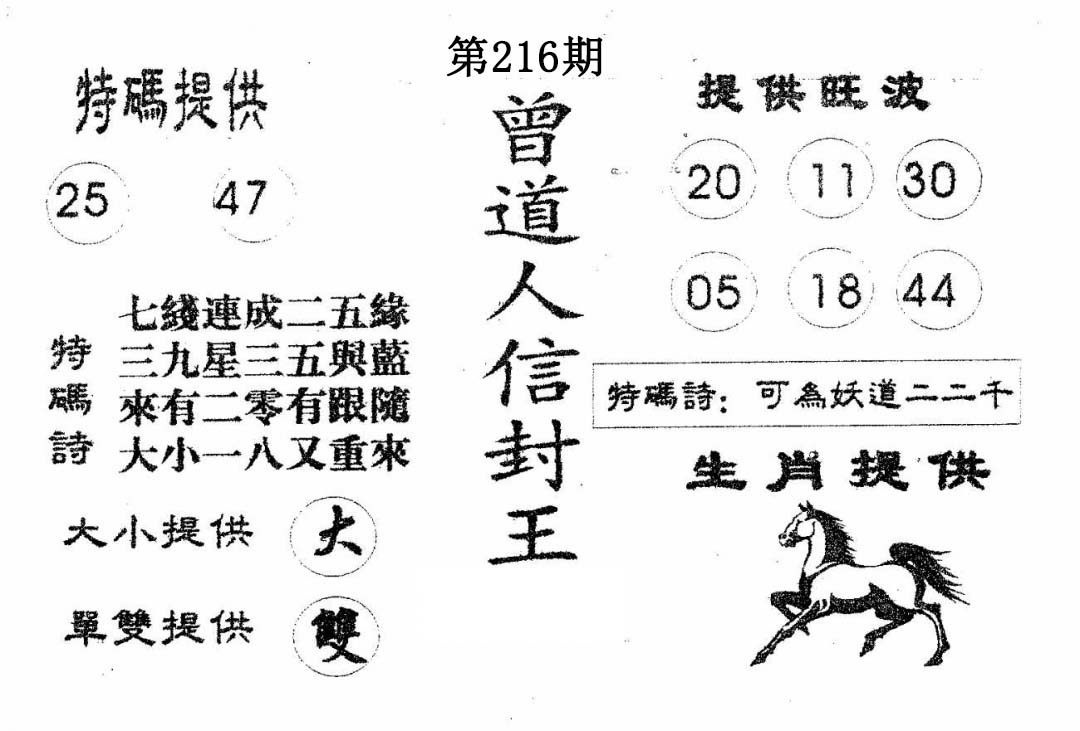 第216期
曾道人信封王
特碼提供
25 47
特碼詩
七綫連成二五緣
三九星三五與藍
來有二零有跟隨
大小一八又重來
大小提供 大
單雙提供 雙
提供旺波
20 11 30
05 18 44
特碼詩：可為妖道二二千
生肖提供